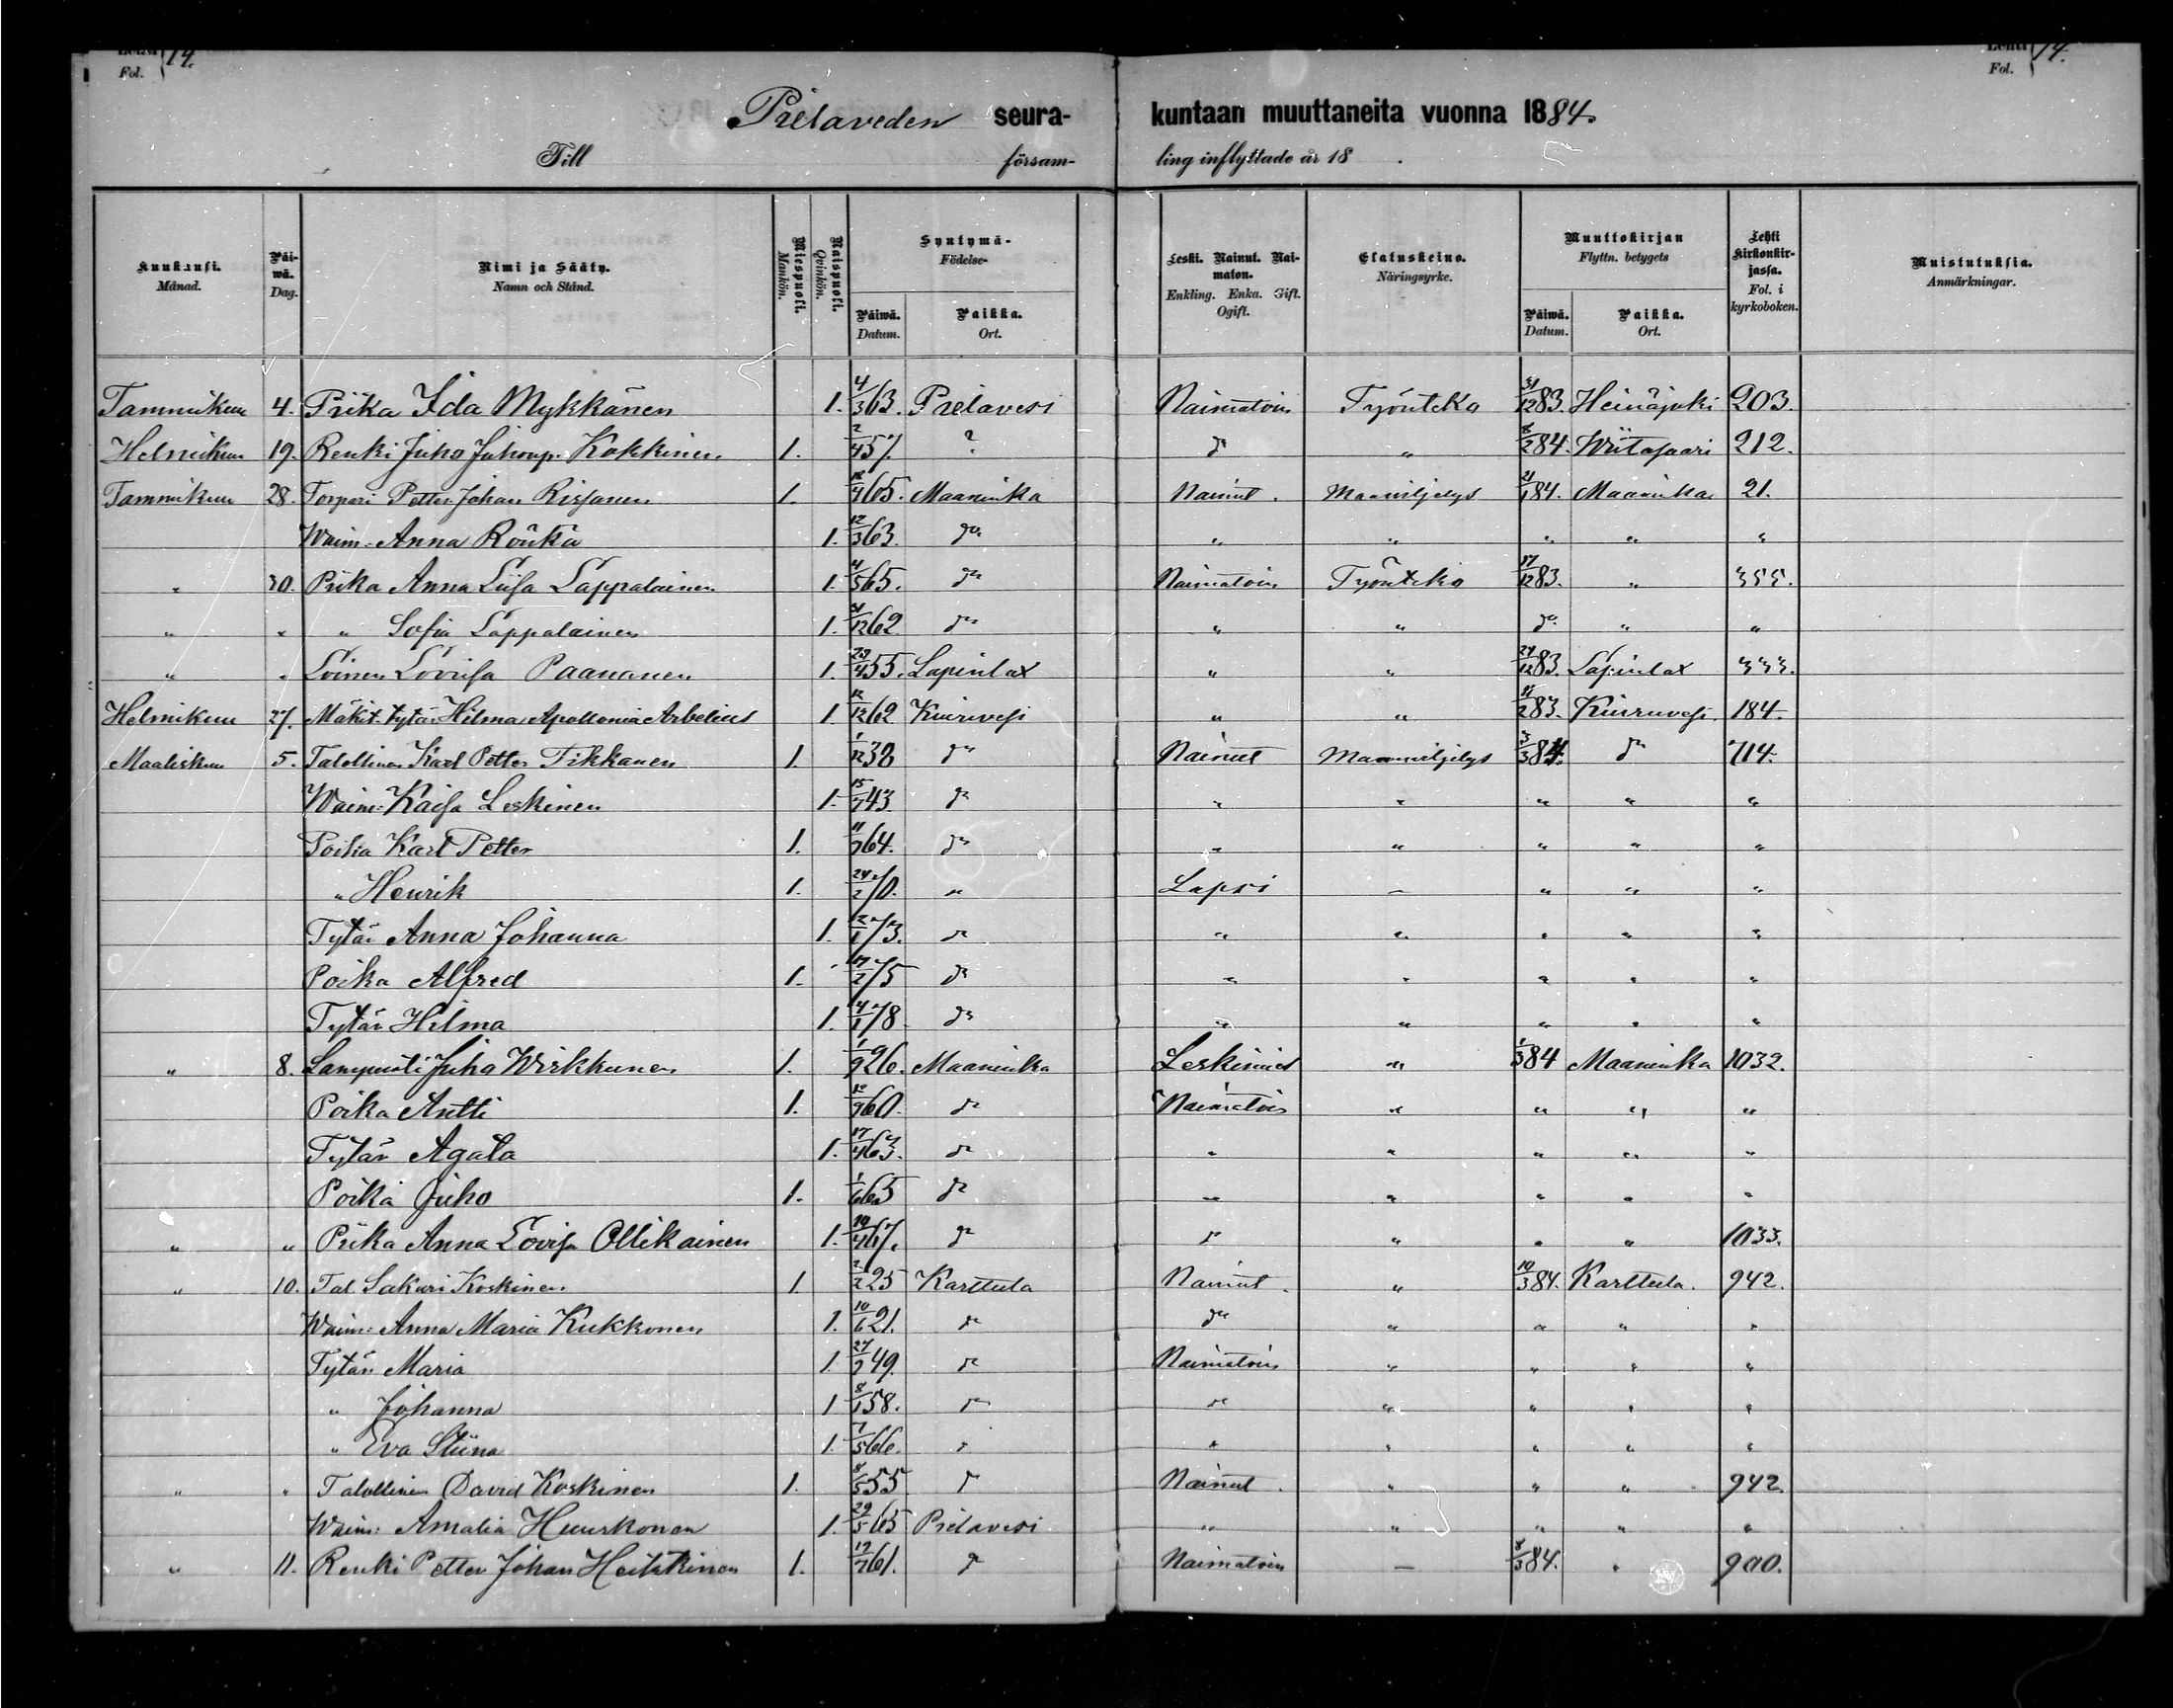 Fol. 14.
Fol. 14.
Pielaveden seura-kuntaan muuttaneita vuonna 1884.
Till försam-ling inflyttade år 18 .
Kuukausi. Månad. | Päiwä. Dag. | Nimi ja Sääty. Namn och Stånd. | Miespuoli. Mankön. | Naispuoli. Qvinkön. | Syntymä- Födelse- Päiwä. Datum. | Paikka. Ort. | Leski. Nainut. Naimaton. Enkling. Enka. Gift. Ogift. | Elatuskeino. Näringsyrke. | Muuttokirjan Flyttn. betygets Päiwä. Datum. | Paikka. Ort. | Lehti Kirkonkirjassa. Fol. i kyrkoboken. | Muistutuksia. Anmärkningar.
Tammikuu 4. Piika Ida Mykkänen 1. 4/3 63. Pielavesi Naimatoin Työnteko 31/12 83. Heinäjoki 203.
Helmikuu 19. Renki Juho Juhonp. Kokkinen 1. 2/4 57. ? do " 8/2 84. Wiitasaari 212.
Tammikuu 28. Torpari Petter Johan Rissanen 1. 4 65. Maaninka Nainut. Maanviljelys 21/1 84. Maaninka 21.
Waim. Anna Rönkä 1. 12/3 63. do " " " " "
" 30. Piika Anna Liisa Lappalainen 1. 4/5 65. do Naimatoin Työnteko 17/12 83. " 355.
" " " Sofia Lappalainen 1. 31/12 62 do " " do " "
" " Loinen Lovisa Paananen 1. 23/4 55. Lapinlax " " 24/12 83. Lapinlax 333.
Helmikuu 27. Mäkit. tytär Hilma Apollonia Arbelius 1. 12/12 62 Kiuruvesi " " 2 83. Kiuruvesi. 184.
Maaliskuu 5. Talollinen Karl Petter Tikkanen 1. 1/12 30 do Nainut Maanviljelys 3/3 84. do 714.
Waim: Kaisa Leskinen 1. 15/7 43. do " " " " "
Poika Karl Petter 1. 64. do " " " " "
" Henrik 1. 24/2 70. " Lapsi " " " "
Tytär Anna Johanna 1. 12/1 73. do " " " " "
Poika Alfred 1. 17/2 75 do " " " " "
Tytär Hilma 1. 4/1 78. do " " " " "
" 8. Lampuoti Juho Wirkkunen 1. 1/9 26. Maaninka Leskimies " 1/3 84 Maaninka 1032.
Poika Antti 1. 12/9 60. do Naimatoin " " " "
Tytär Agata 1. 17/4 63. do " " " " "
Poika Juho 1. 1/6 65 do " " " " "
" " Piika Anna Lovisa Ollikainen 1. 10/4 67. do " " " " 1033.
" 10. Tal. Sakari Koskinen 1. 2/2 25 Karttula Nainut. " 10/3 84. Karttula. 942.
Waim: Anna Maria Kukkonen 1. 10/6 21. do do " " " "
Tytär Maria 1. 27/2 49. do Naimatoin " " " "
" Johanna 1 8/1 58. do do " " " "
" Eva Stiina 1. 7/5 66. " " " " " "
" " Talollinen David Koskinen 1. 8/5 55 do Nainut. " " " 942.
Waim: Amalia Huuskonen 1. 29/5 65 Pielavesi " " " " "
" 11. Renki Petter Johan Heiskinen 1. 19/7 61. do Naimatoin — 8/3 84. " 900.